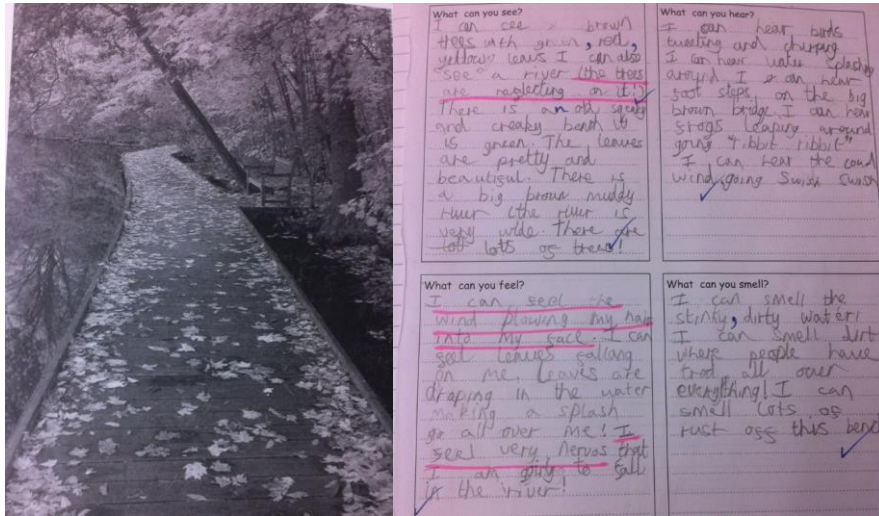 What can you see?
I can see brown
trees with green, red,
yellow leaus I can also
see a river (the trees
are reglecting on it!)
There is an old sqeaky
and creaky bench it
is green. The leaues
are pretty and
beautigul. There is
a big brown muddy
river (the river is
very wide. There are
lots of trees!
What can you hear?
I can hear birds
tweeting and chirping
I can hear water splashing
around I can hear
foot steps, on the big
brown bridge. I can hear
frogs leaping around
going "ribbit ribbit"
I can hear the
wind going Swish Swish
What can you feel?
I can feel the
wind plowing my hair
into my face. I can
feel leaves fallang
on me. Leaves are
draping in the water
making a splash
go all over me! I
feel very nervos that
I am going to fall
in the river!
What can you smell?
I can smell the
stinky, dirty water!
I can smell dirt
where people have
trod all over
everything! I can
smell lots of
rust off this bench